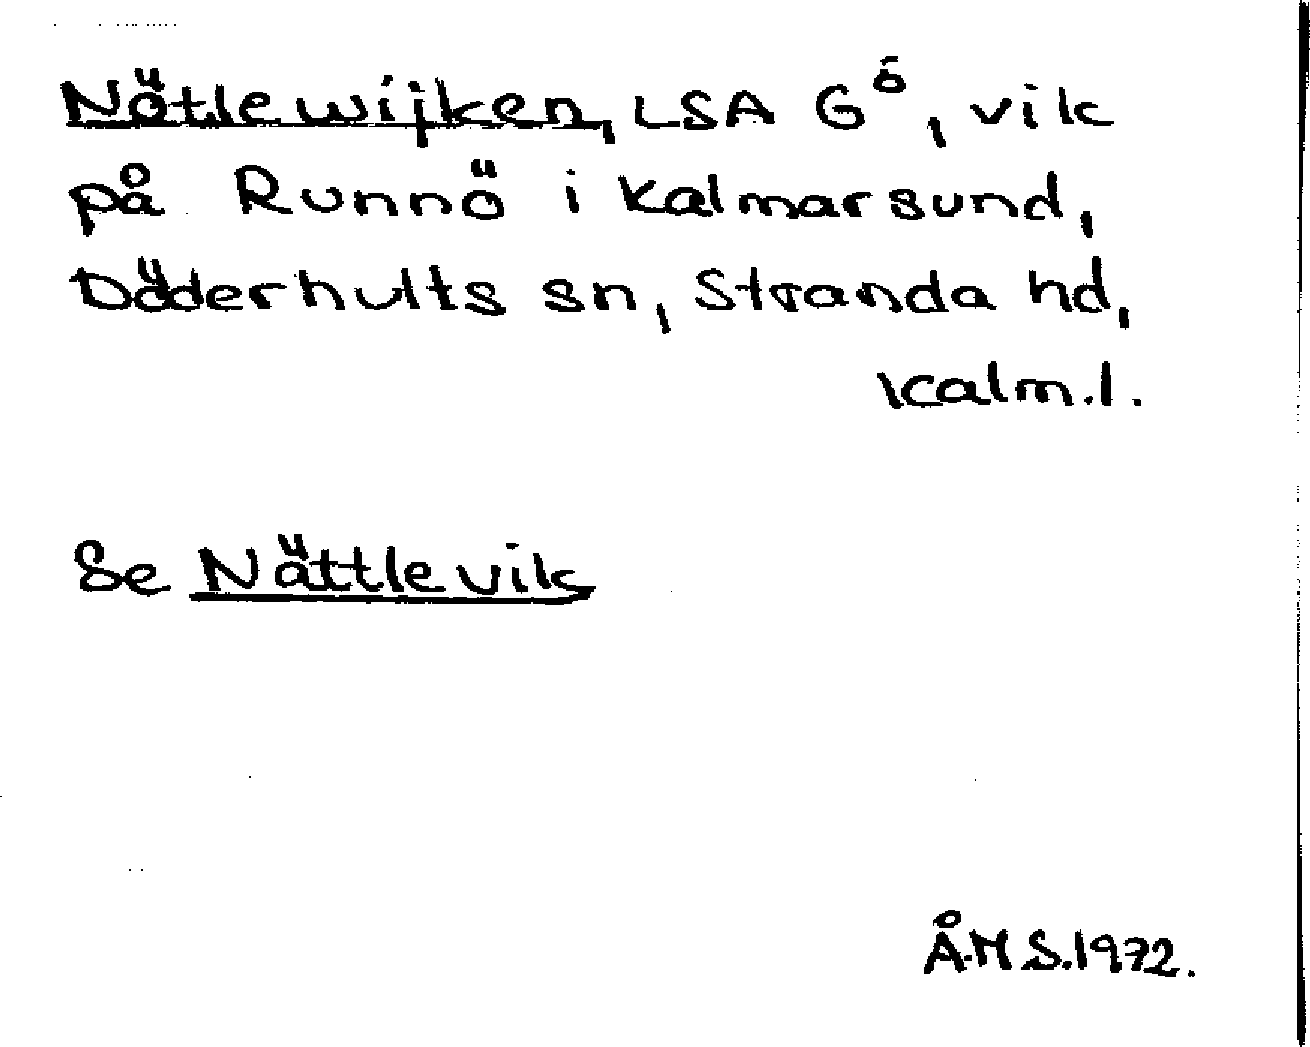 Nötlewijken, LSA G⁶, vik
på Runnö i Kalmarsund,
Döderhults sn, Stranda hd,
Kalm.l.
Se Nättlevik
Å.M S.1972.